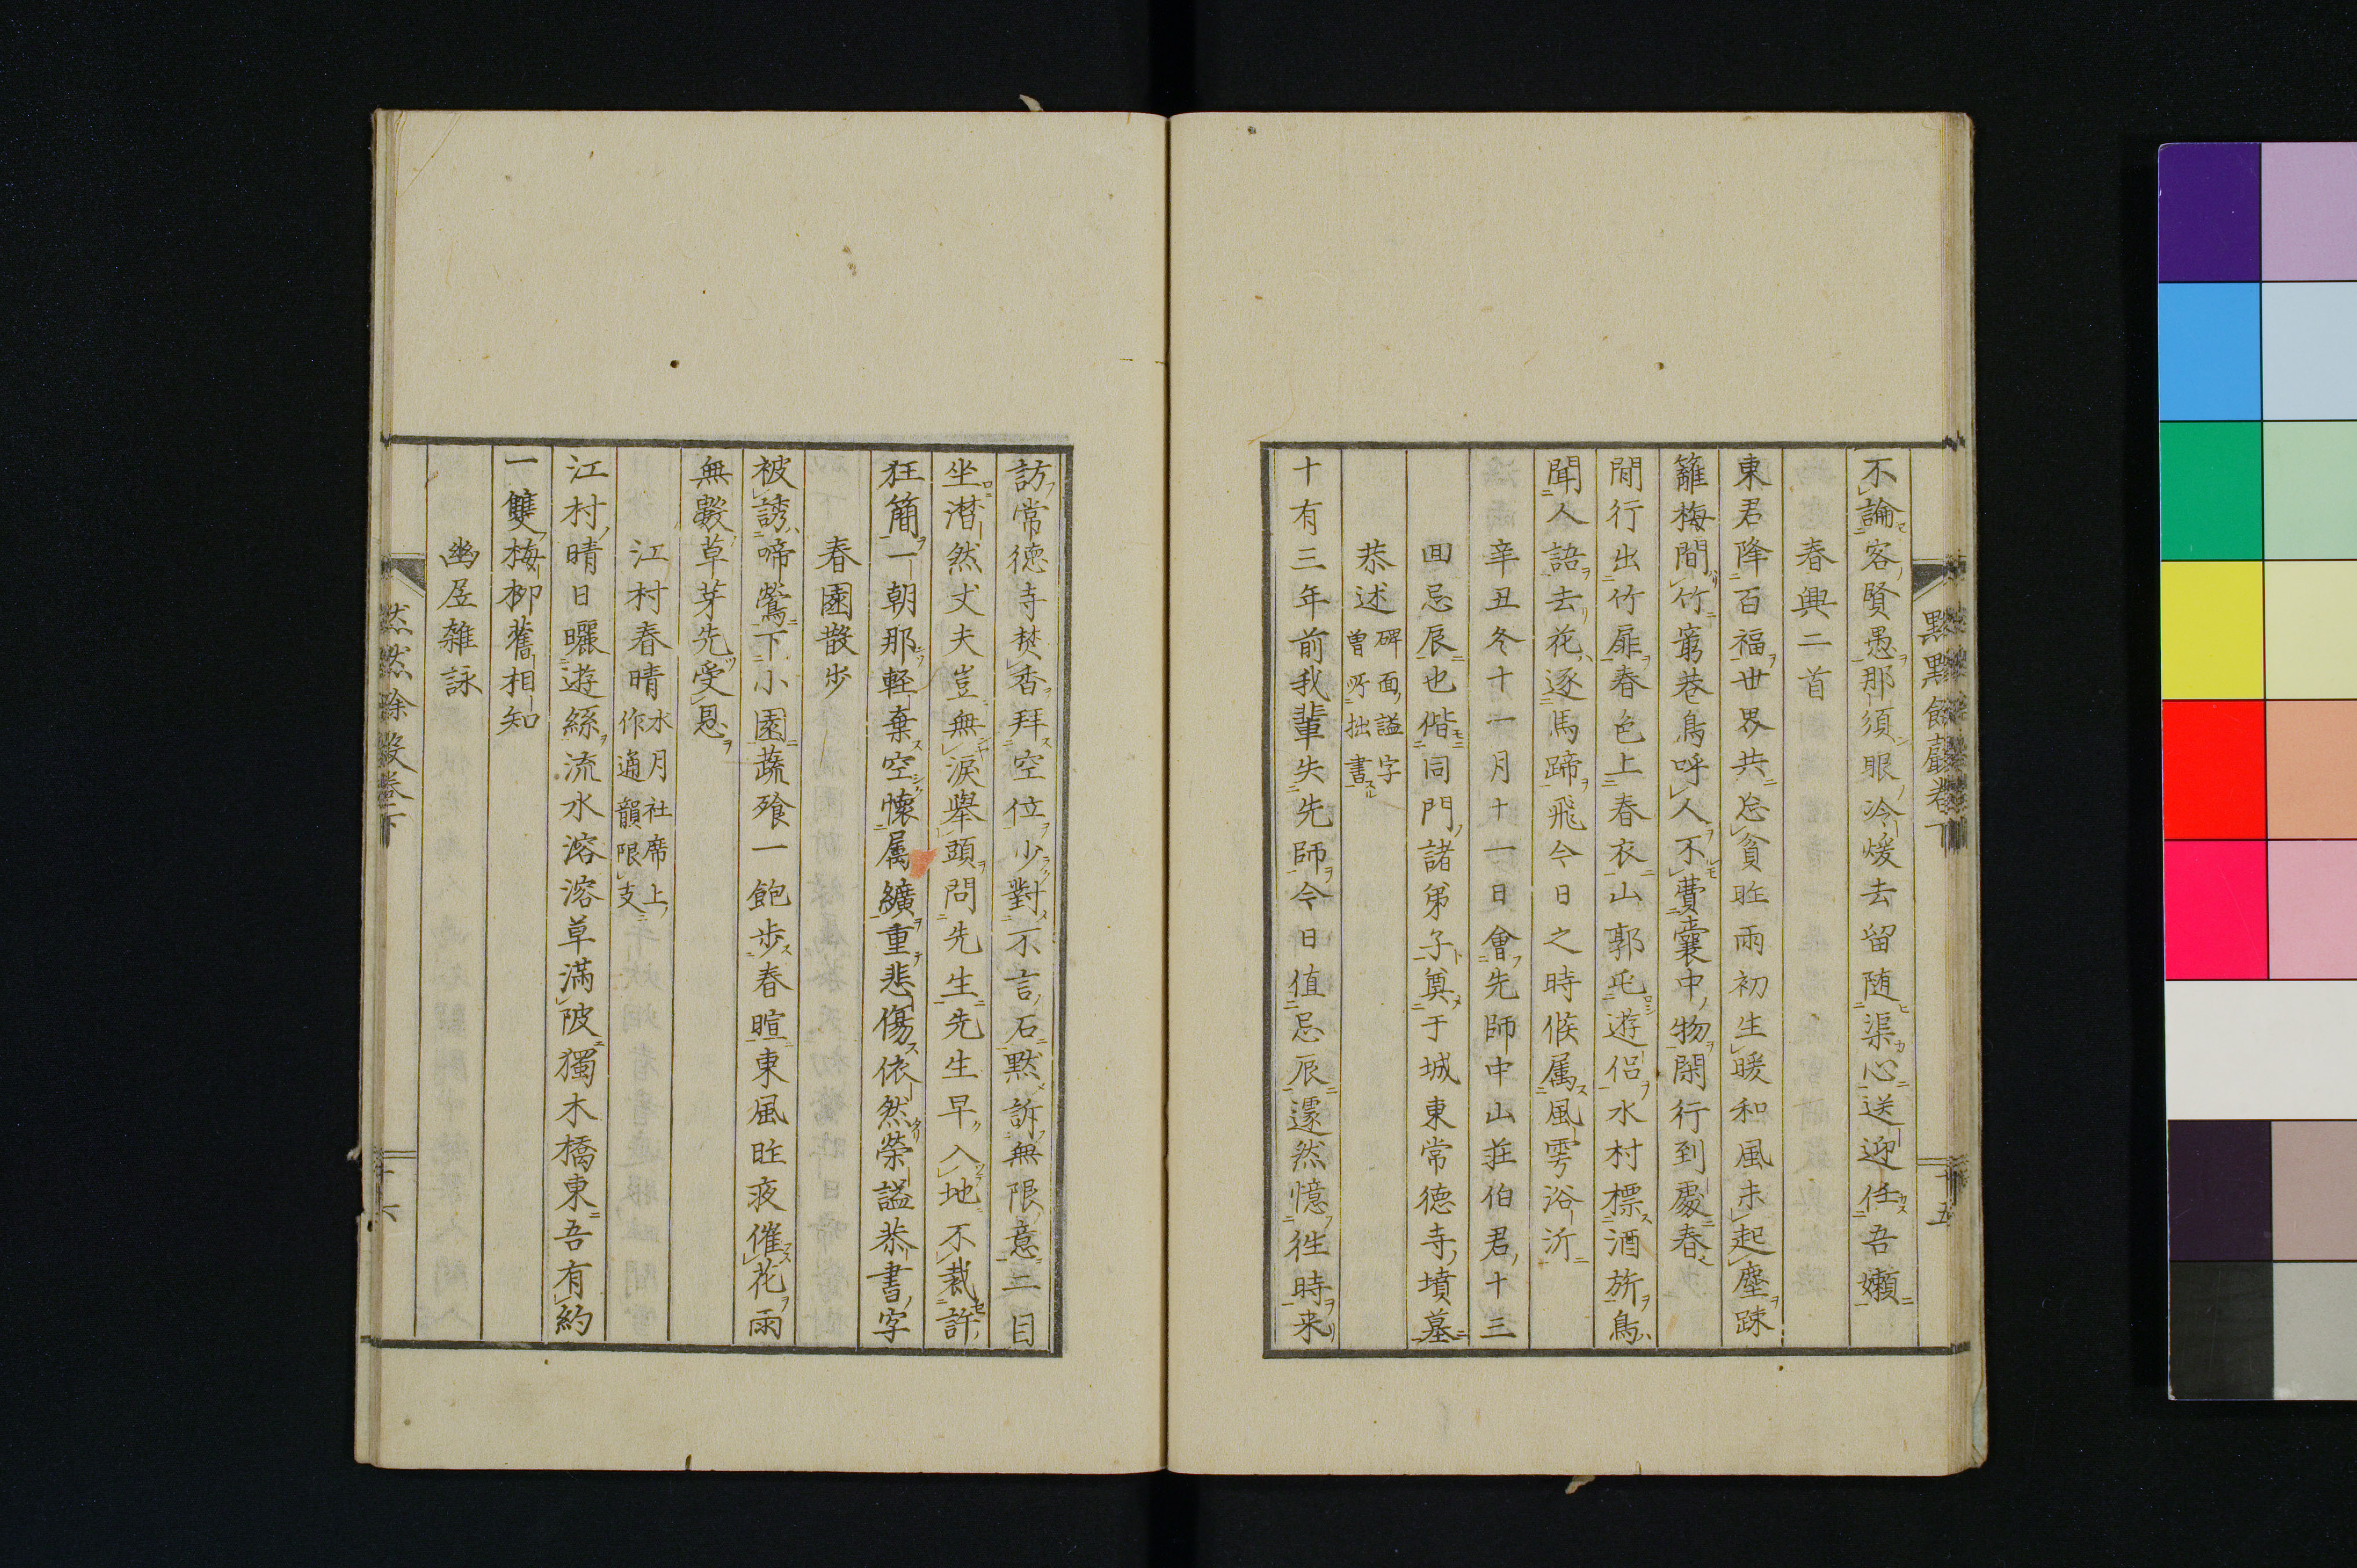 不論客賢愚那須眼冷煖去留随渠心送迎任吾嬾
春興二首
東君降百福世界共忘貧昨雨初生暖和風未起塵踈
籬梅間竹窮巷鳥呼人不費囊中物閑行到處春
間行出竹扉春色上春衣山郭屯遊侶水村標酒旂鳥
聞人語去花逐馬蹄飛今日之時候属風雩浴沂
辛丑冬十一月十一日會先師中山莊伯君十三
回忌辰也偕同門諸弟子奠于城東常徳寺墳墓
恭述碑面謚字曽所拙書
十有三年前我輩失先師今日值忌辰遽然憶徃時来
訪常徳寺焚香拜空位少對不言石黙訴無限意二目
坐潜然丈夫豈無涙舉頭問先生先生早入地不裁許
狂簡一朝那軽棄空懷属纊重悲傷依然榮謚恭書字
春園散歩
被誘啼鶯下小園蔬飱一飽歩春暄東風昨夜催花雨
無數草芽先受恩
江村春晴水月社席上作通韻限支
江村晴日曬遊絲流水溶溶草滿陂獨木橋東吾有約
一雙梅柳舊相知
幽居雜詠